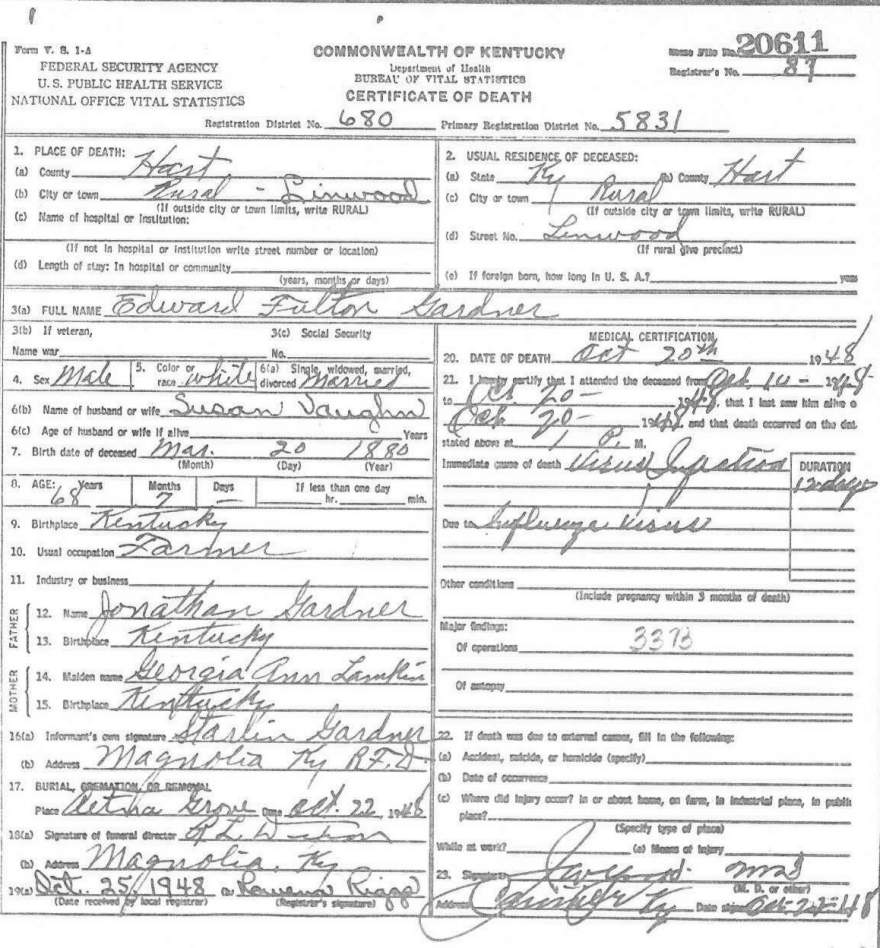 Form V. S. 1-A
FEDERAL SECURITY AGENCY
U.S. PUBLIC HEALTH SERVICE
NATIONAL OFFICE VITAL STATISTICS
COMMONWEALTH OF KENTUCKY
Department of Health
BUREAU OF VITAL STATISTICS
CERTIFICATE OF DEATH
File No. 20611
Registrar's No. 87
Registration District No. 680 Primary Registration District No. 5831
1. PLACE OF DEATH:
(a) County Hart
(b) City or town Rural - Linwood
(If outside city or town limits, write RURAL)
(c) Name of hospital or Institution:
(If not in hospital or institution write street number or location)
(d) Length of stay: In hospital or community
(years, months or days)
2. USUAL RESIDENCE OF DECEASED:
(a) State Ky (b) County Hart
(c) City or town Rural
(If outside city or town limits, write RURAL)
(d) Street No. Linwood
(If rural give precinct)
(e) If foreign born, how long in U. S. A.? years
3(a) FULL NAME Edward Fulton Gardner
3(b) If veteran,
Name war
3(c) Social Security
No.
4. Sex Male
5. Color or race white
6(a) Single, widowed, married, divorced Married
6(b) Name of husband or wife Susan Vaughn
6(c) Age of husband or wife if alive Years
7. Birth date of deceased Mar. 20 1880
(Month) (Day) (Year)
8. AGE: Years 68 Months 7 Days — If less than one day
hr. min.
9. Birthplace Kentucky
10. Usual occupation Farmer
11. Industry or business
FATHER
12. Name Jonathan Gardner
13. Birthplace Kentucky
MOTHER
14. Maiden name Georgia Ann Lamkin
15. Birthplace Kentucky
16(a) Informant's own signature Starlin Gardner
(b) Address Magnolia Ky R.F.D
17. BURIAL, CREMATION, OR REMOVAL
Place Aetna Grove Oct. 22, 1948
18(a) Signature of funeral director
(b) Address Magnolia, Ky
19(a) Oct. 25, 1948 Rowena Riggs
(Date received by local registrar) (Registrar's signature)
MEDICAL CERTIFICATION
20. DATE OF DEATH Oct 20th 1948
21. I hereby certify that I attended the deceased from Oct. 10 - 1948
to Oct 20 - 1948, that I last saw him alive o
Oct. 20 - 1948, and that death occurred on the dat
stated above at 1 P. M.
Immediate cause of death Virus Infection
DURATION
12 days
Due to Influenza virus
Other conditions
(Include pregnancy within 3 months of death)
Major findings:
Of operations 337B
Of autopsy
22. If death was due to external causes, fill in the following:
(a) Accident, suicide, or homicide (specify)
(b) Date of occurrence
(c) Where did injury occur? In or about home, on farm, in industrial place, in public
place?
(Specify type of place)
While at work? (e) Means of injury
23. Signature
(M. D. or other)
Address Ky Date signed Oct-22-48